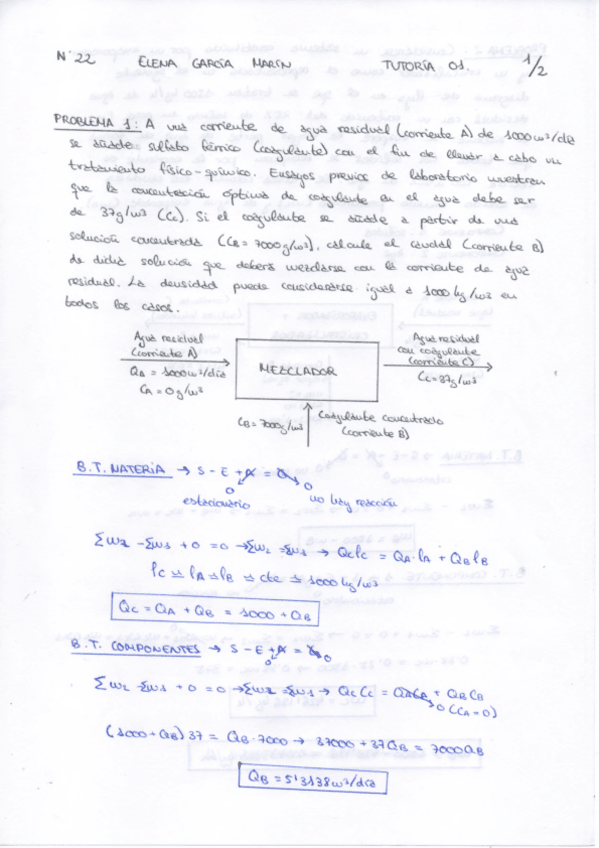 Nº 22 ELENA GARCÍA MARÍN TUTORÍA 01. 1/2
PROBLEMA 1: A una corriente de agua residual (corriente A) de 1000 m³/día
se añade sulfato férrico (coagulante) con el fin de llevar a cabo un
tratamiento físico-químico. Ensayos previos de laboratorio muestran
que la concentración óptima de coagulante en el agua debe ser
de 37g/m³ (Cc). Si el coagulante se añade a partir de una
solución concentrada (CB = 7000 g/m³), calcule el caudal (corriente B)
de dicha solución que deberá mezclarse con la corriente de agua
residual. La densidad puede considerarse igual a 1000 kg/m³ en
todos los casos.
Agua residual
(corriente A)
QA = 1000 m³/día
CA = 0 g/m³
MEZCLADOR
Agua residual
con coagulante
(corriente C)
Cc = 37g/m³
CB = 7000g/m³
Coagulante concentrado
(corriente B)
B.T. MATERIA → S - E + A = G
0
estacionario
0
no hay reacción
Σm2 - Σm1 + 0 = 0 → Σm2 = Σm1 → Qcρc = QA·ρA + QBρB
ρc ≃ ρA ≃ ρB ≃ cte ≃ 1000 kg/m³
Qc = QA + QB = 1000 + QB
B.T. COMPONENTES → S - E + A = G
0
0
Σm2 - Σm1 + 0 = 0 → Σm2 = Σm1 → QcCc = QACA + QBCB
0 (CA = 0)
(1000 + QB) 37 = QB · 7000 → 37000 + 37QB = 7000QB
QB = 5'3138 m³/día